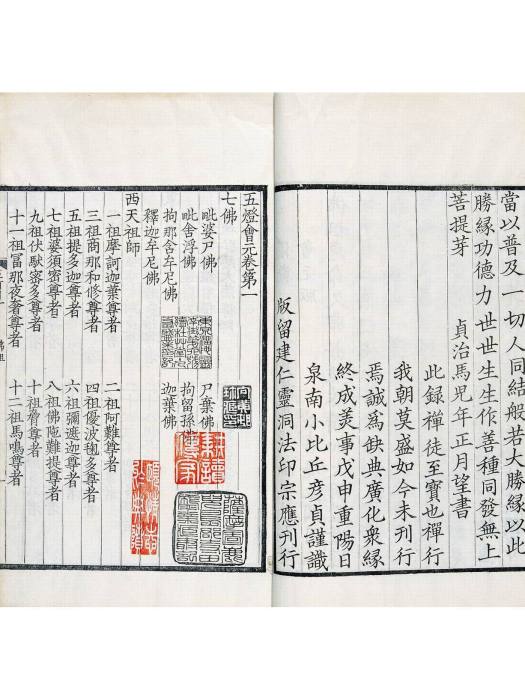 當以普及一切人同結般若大勝緣以此
勝緣功德力世世生生作善種同發無上
菩提芽
貞治馬兒年正月望書
此録禪徒至寶也禪行
我朝莫盛如今未刊行
焉誠為缺典廣化衆緣
終成美事戊申重陽日
泉南小比丘彦貞謹識
版留建仁靈洞法印宗應刊行
五燈會元卷第一
七佛
毗婆尸佛 尸棄佛
毗舍浮佛 拘留孫
拘那含牟尼佛 迦葉佛
釋迦牟尼佛
西天祖師
一祖摩訶迦葉尊者 二祖阿難尊者
三祖商那和修尊者 四祖優波毱多尊者
五祖提多迦尊者 六祖彌遮迦尊者
七祖婆須密尊者 八祖佛陁難提尊者
九祖伏馱密多尊者 十祖脅尊者
十一祖富那夜奢尊者 十二祖馬鳴尊者